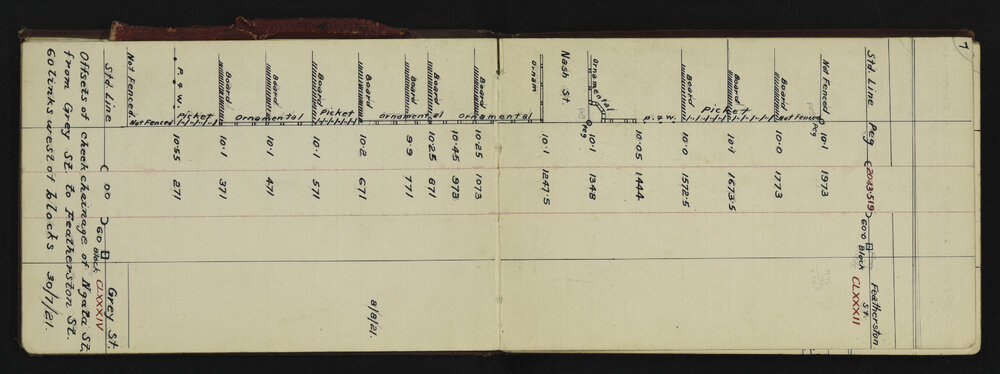 7
Std. Line Peg (2043·519) 60·0 Block CLXXXII Featherston St.
Not Fenced Peg 10·1 1973
Not Fenced
Board 10·0 1773
Picket
Board 10·1 1673·5
Board 10·0 1572·5
P. & W. 10·05 1444
Ornamental Peg 10·1 1348
Nash St.
Ornam 10·1 1247·5
Ornamental
Board 10·25 1073
10·45 973
Board 10·25 871
Ornamental
9·9 771
Board 10·2 671 8/8/21.
Picket
Board 10·1 571
Board 10·1 471
Ornamental
Board 10·1 371
Picket
P. & W. 10·55 271
Not Fenced
Not Fenced.
Std. Line (00) 60 Block CLXXXIV Grey St.
Offsets of check chainage of Ngata St.
from Grey St. to Featherston St.
60 links west of blocks 30/7/21.